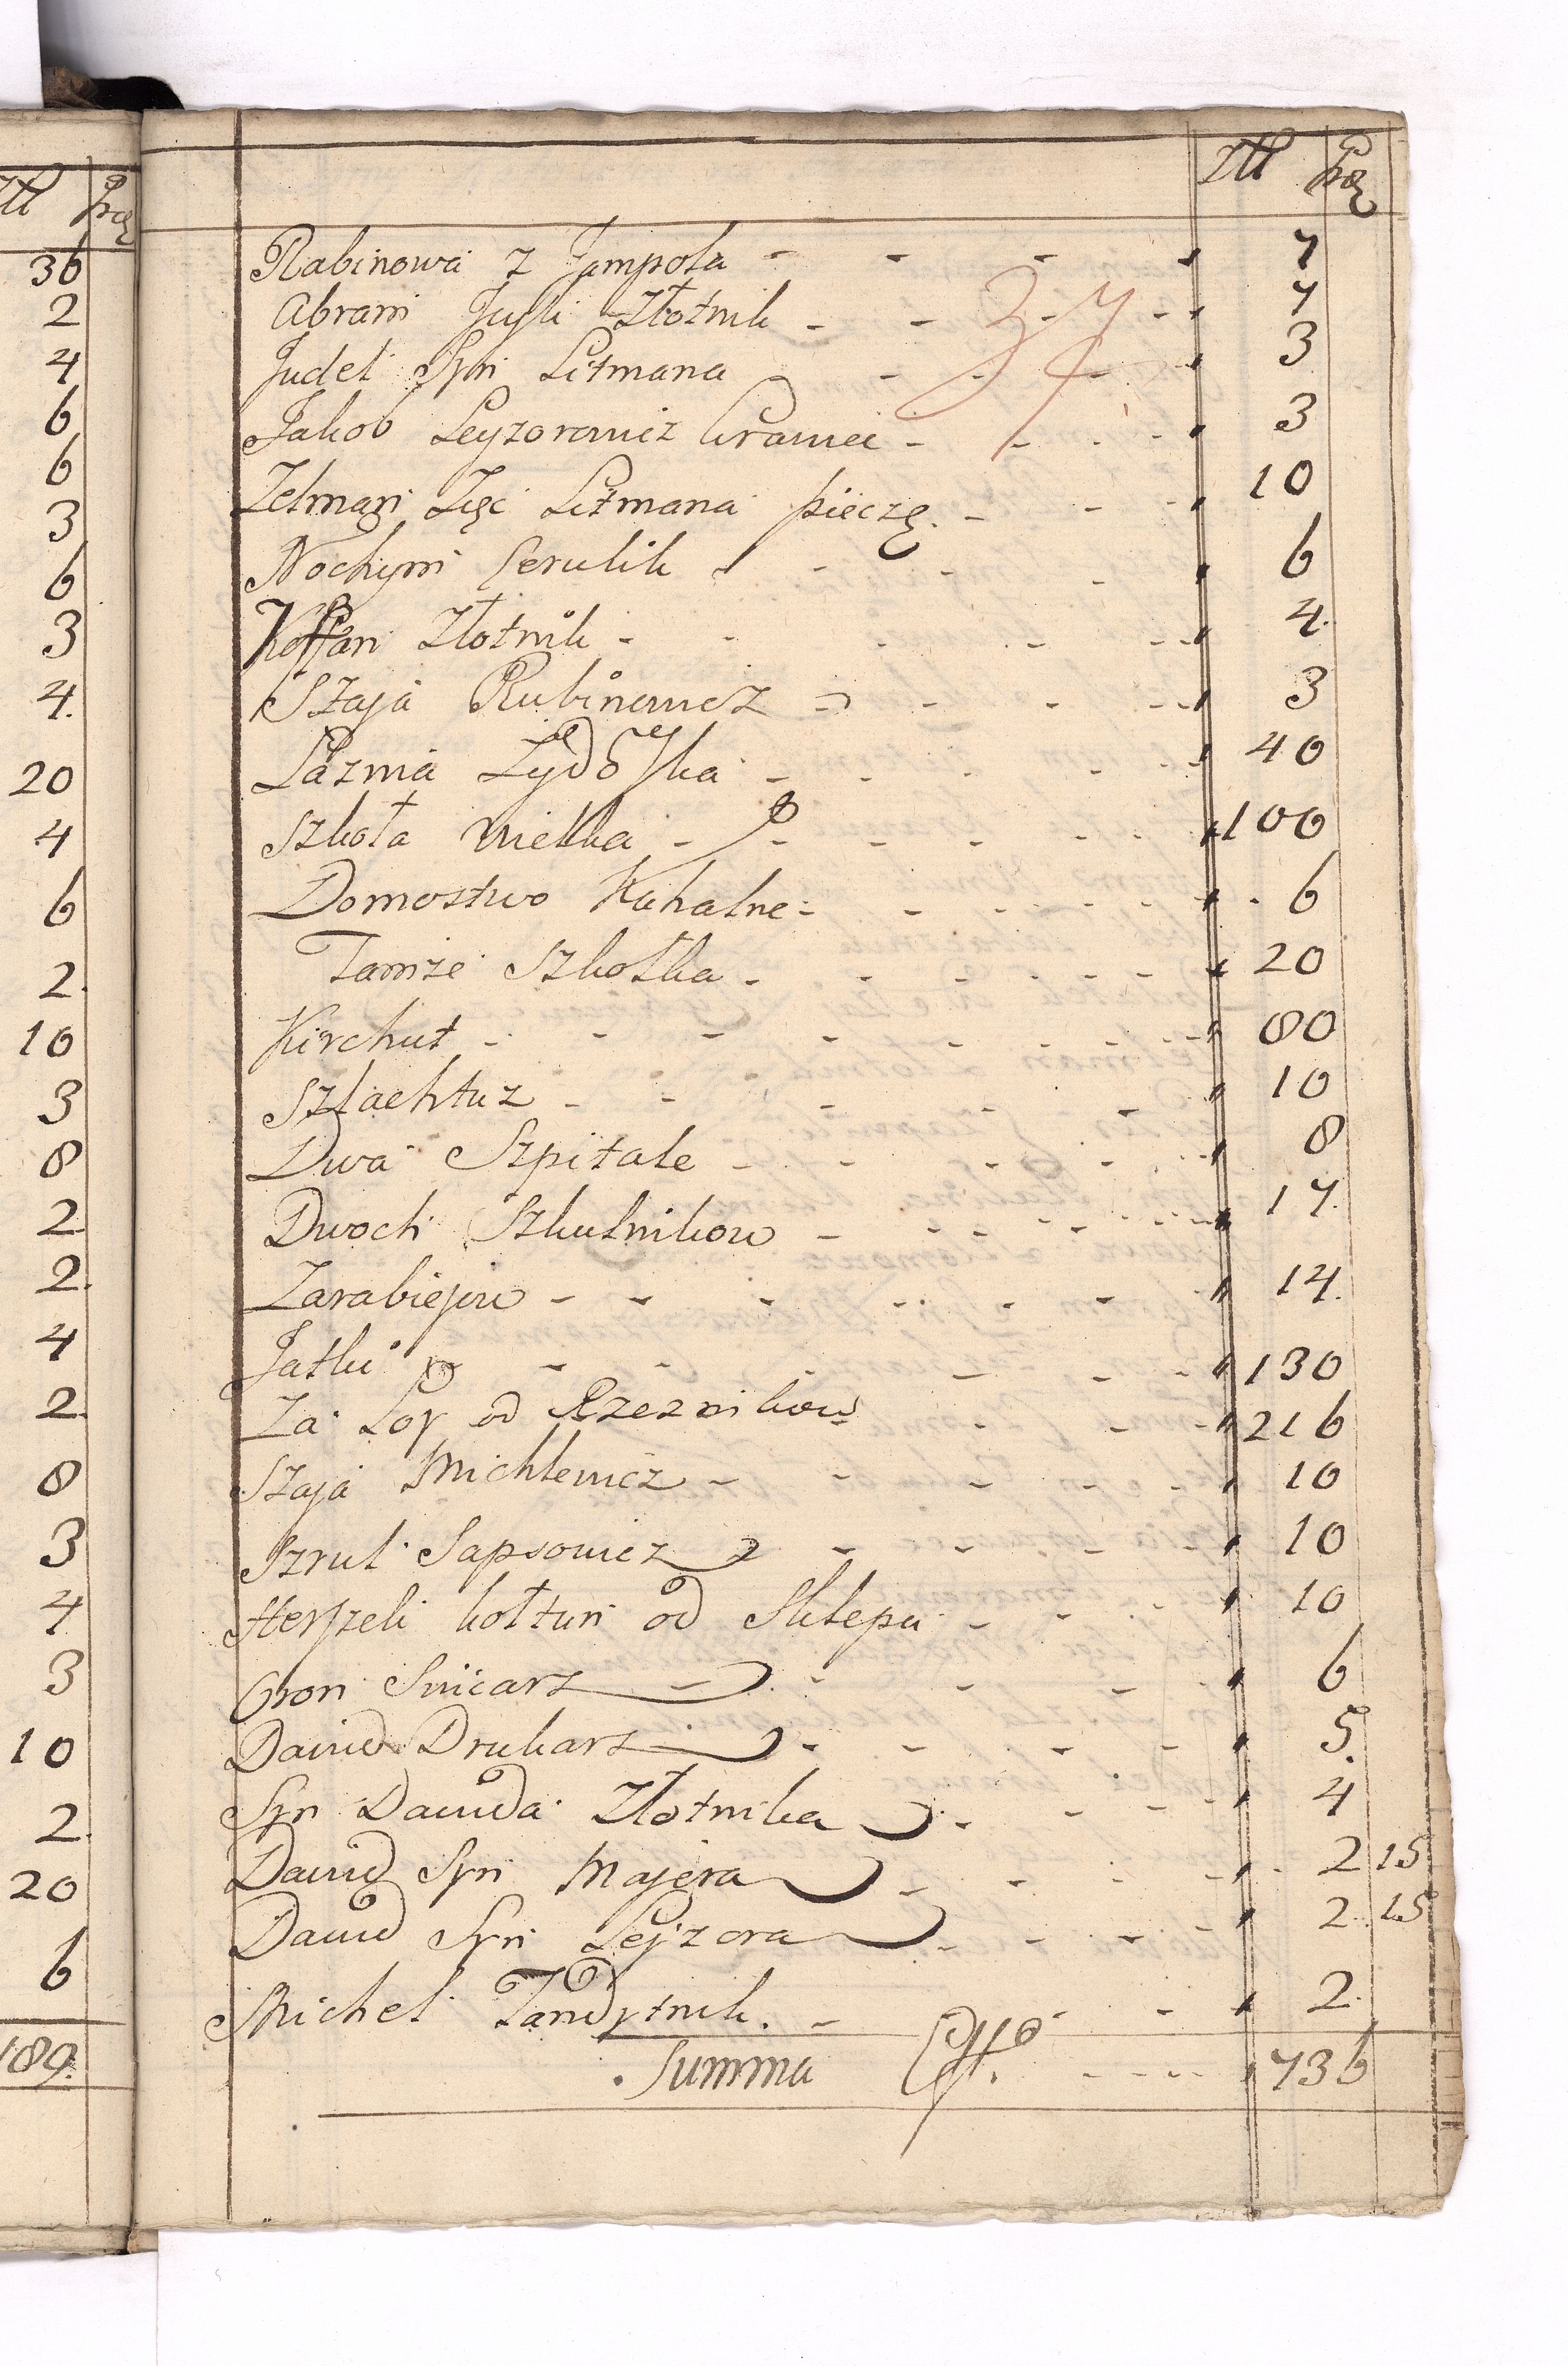 Ztł grz
36
2
4
6
6
3
6
3
4.
20
4
6
2.
10
3
8
2
2.
4
2.
8
3
4
3
10
2.
20
6
189.
Ztł grz
37
Rabinowa z Jampola - - - " 7
Abram Złotnik - - - - " 7
Judel Syn Litmana - - - " 3
Jakob Leyzorowicz kramei - - - " 3
Zelman Zięć Litmana pieczę. - - " 10
Nochym Cerulik - - - " 6
Złotnik - - - - " 4.
Szaja Rubinowicz - - - - " 3
Łaznia Zydoska - - - - " 40
Szkoła Wielka - - - - " 100
Domostwo Kahalne - - - - " 6
Tamze Szkołka - - - - " 20
Kirchut - - - - - " 80
Szlachtuz - - - - " 10
Dwa Szpitale - - - - " 8
Dwoch Szkulnikow - - - - " 17.
Zarabieju - - - - - " 14.
Jatki - - - - " 130
Za Loy od Rzeznikow - - " 216
Szaja Michlewicz - - - - " 10
Szrul Sapsowicz - - - - " 10
Herszeli kołtun od Sklepu - - " 10
Oron Snicarz - - - - " 6
Dawid Drukarz - - - - " 5.
Syn Dawida Złotnika - - - " 4
Dawid Syn Majera - - - " 2 15
Dawid Syn Lejzora - - - " 2 15
Michel Tandytnik. - - " 2.
Summa - - - - " 736